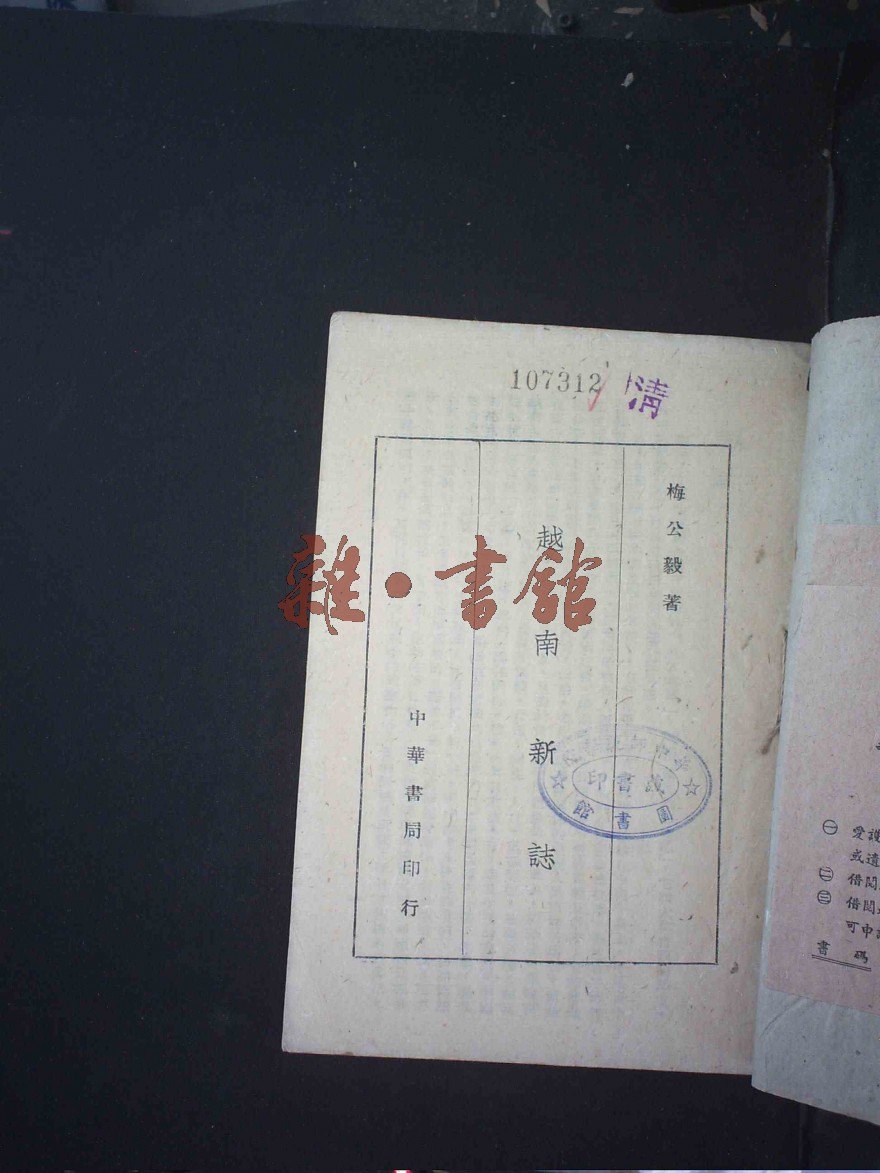 107312
清
梅公毅著
越南新誌
中華書局印行
雜·書館
圖書館
藏書印
㊀ 愛護
或遺
㊁ 借閱
㊂ 借閱
可申請
書碼